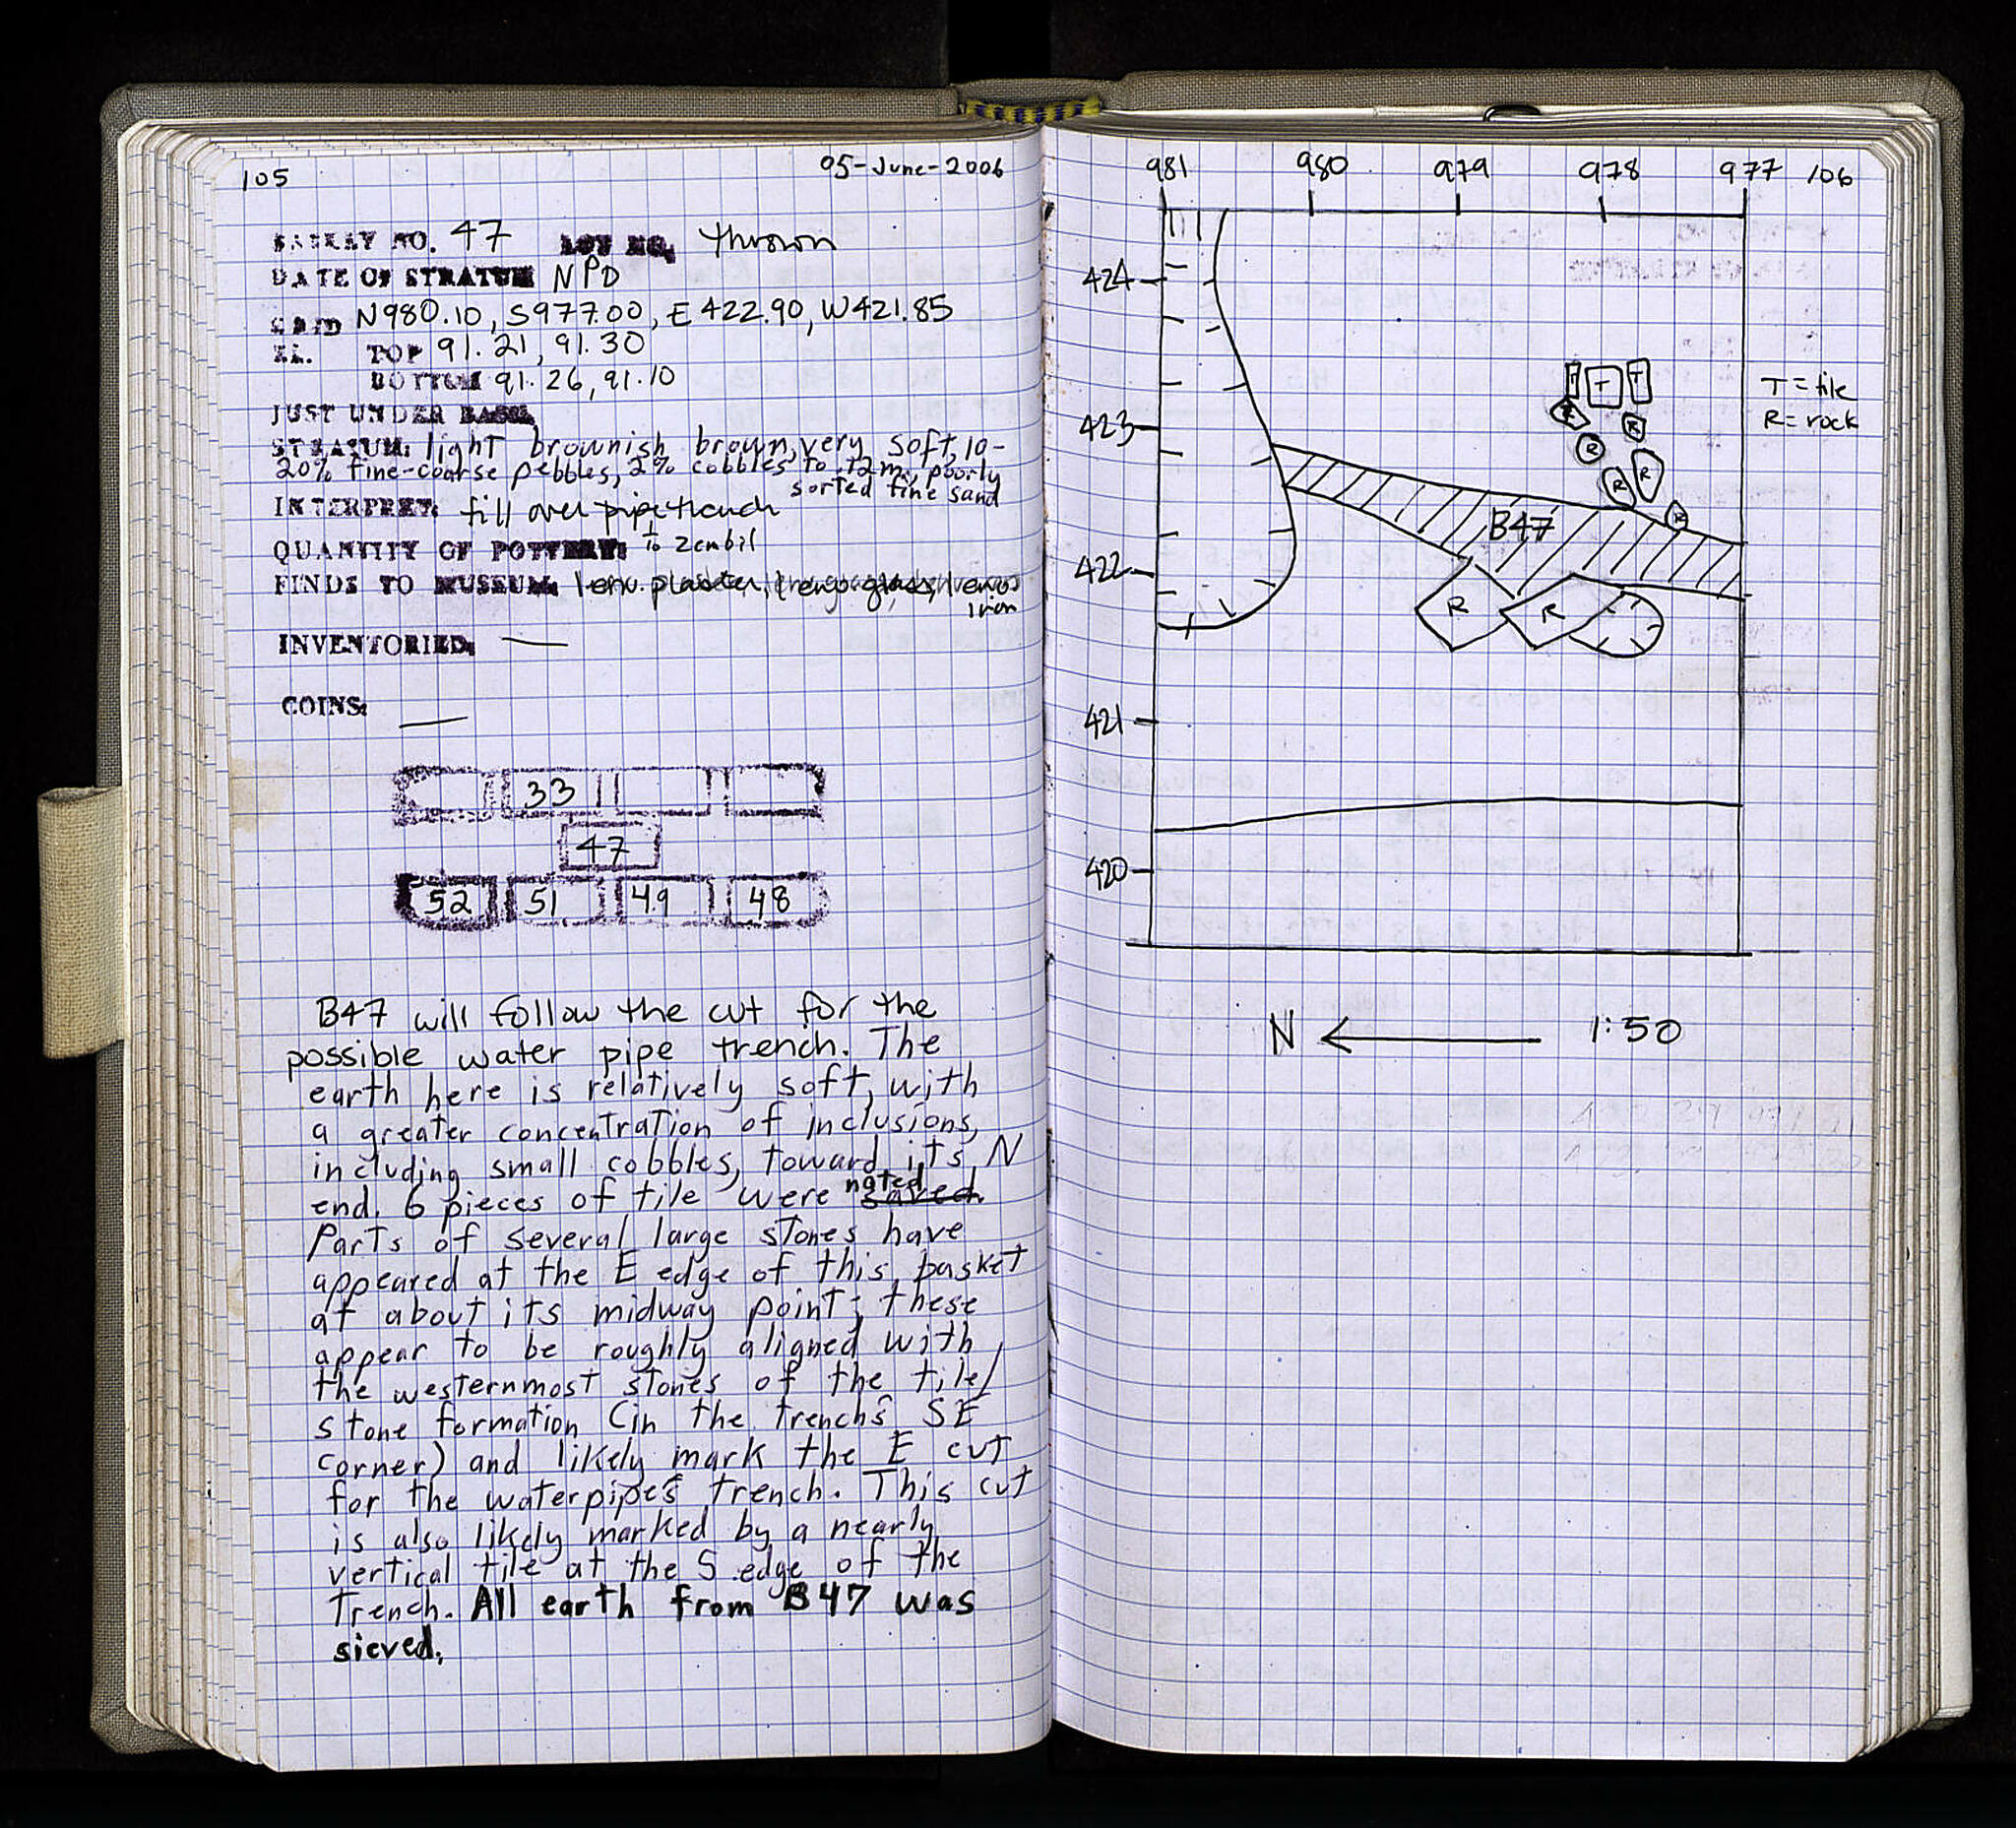 105 05-June-2006
BASKET NO. 47 LOT NO. thrown
DATE OF STRATUM NPD
GRID N980.10, S977.00, E422.90, W421.85
EL. TOP 91.21, 91.30
BOTTOM 91.26, 91.10
JUST UNDER BASK.
STRATUM: light brownish brown, very soft, 10-
20% fine-coarse pebbles, 2% cobbles to .12m, poorly
sorted fine sand
INTERPRET: fill over pipe trench
QUANTITY OF POTTERY: to zembil
FINDS TO MUSEUM: 1 env. plaster, 1 env. glass, 1 env.
iron
INVENTORIED: —
COINS: —
33
47
52 51 49 48
B47 will follow the cut for the
possible water pipe trench. The
earth here is relatively soft, with
a greater concentration of inclusions,
including small cobbles, toward its N
end. 6 pieces of tile were noted saved
Parts of several large stones have
appeared at the E edge of this basket
at about its midway point; these
appear to be roughly aligned with
the westernmost stones of the tile/
stone formation (in the trench's SE
corner) and likely mark the E cut
for the waterpipe's trench. This cut
is also likely marked by a nearly
vertical tile at the S edge of the
trench. All earth from B47 was
sieved.
981 980 979 978 977 106
424
T T T
T = tile
R = rock
423
R R
R
R R
R
B47
422
R R
421
420
N ← 1:50